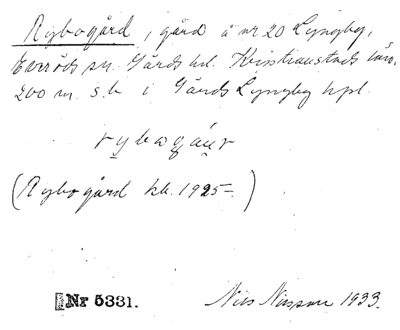 Nybogård, gård å nr 20 Lyngby,
Everöds sn. Gärds hd. Kristianstads län.
200 m. s.b. i Gärds Lyngby hpl.
rybogá̱r
(Nybogård kb. 1925–)
Nr 5331.
Nils Nilsson 1933.